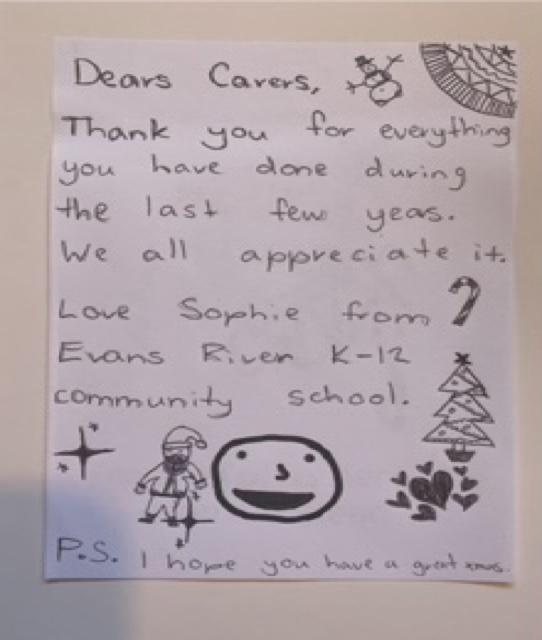 Dears Carers,
Thank you for everything
you have done during
the last few yeas.
We all appreciate it.
Love Sophie from
Evans River K-12
community school.
P.S. I hope you have a great xmas.